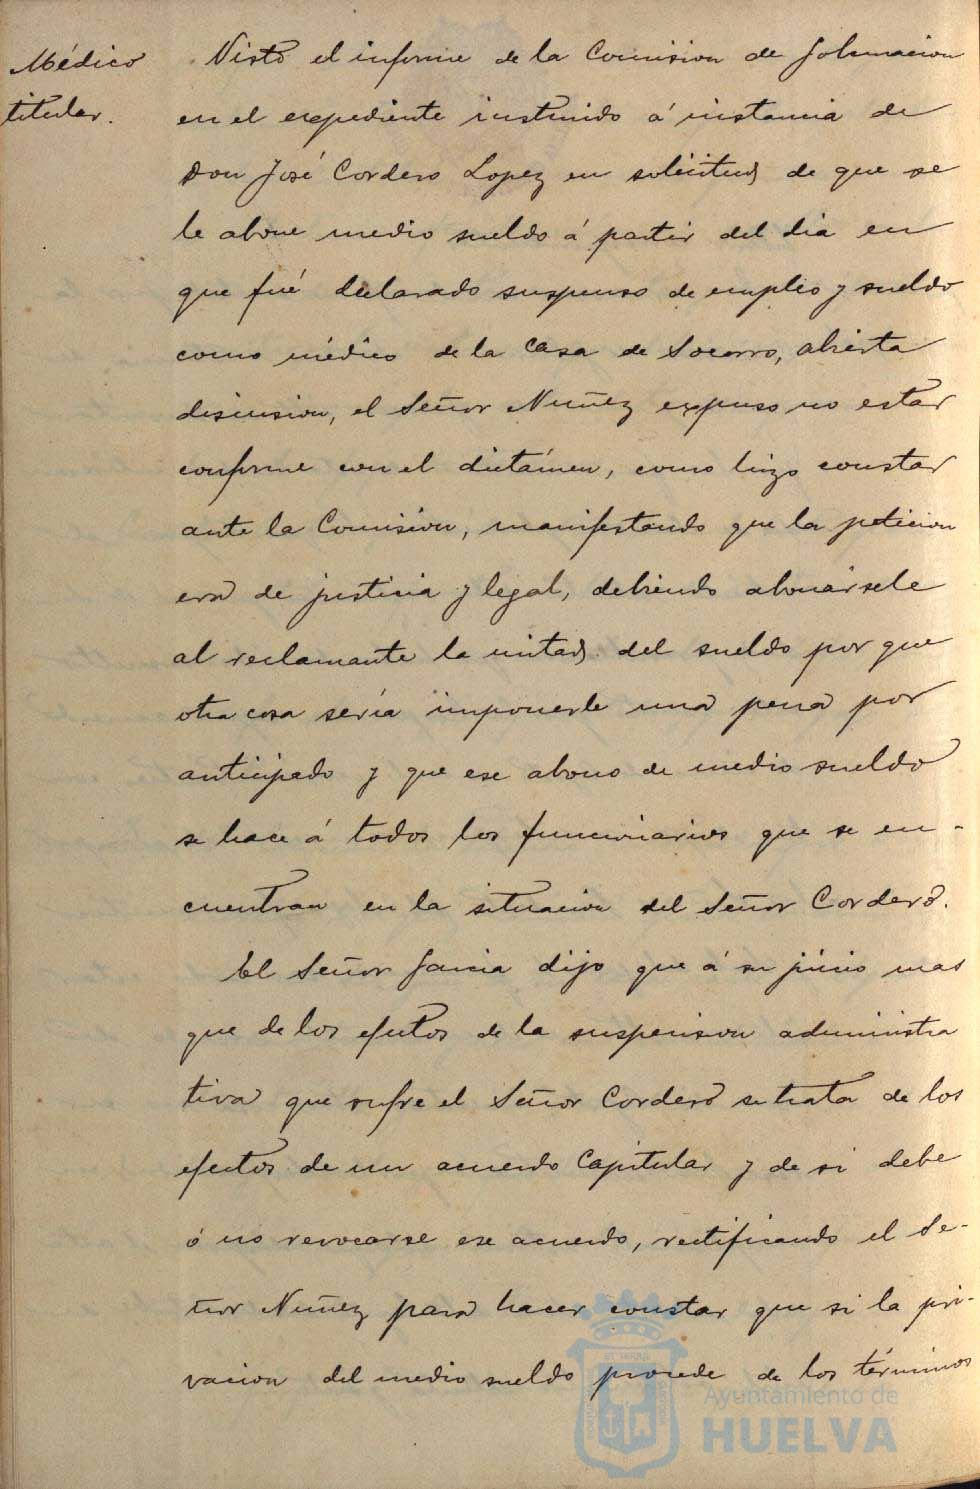 Médico
titular.
Visto el informe de la Comision de Gobernacion
en el expediente instruido á instancia de
Don José Cordero Lopez en solicitud de que se
le abone medio sueldo á partir del dia en
que fué declarado suspenso de empleo y sueldo
como médico de la Casa de Socorro, abierta
discusion, el Señor Nuñez expuso no estar
conforme con el dictámen, como hizo constar
ante la Comision, manifestando que la peticion
era de justicia y legal, debiendo abonársele
al reclamante la mitad del sueldo por que
otra cosa sería imponerle una pena por
anticipado y que ese abono de medio sueldo
se hace á todos los funcionarios que se en-
cuentran en la situacion del Señor Cordero.
El Señor Garcia dijo que á su juicio mas
que de los efectos de la suspension administra
tiva que sufre el Señor Cordero se trata de los
efectos de un acuerdo Capitular y de si debe
ó no revocarse ese acuerdo, rectificando el Se-
ñor Nuñez para hacer constar que si la pri-
vacion del medio sueldo procede de los términos
Ayuntamiento de
HUELVA